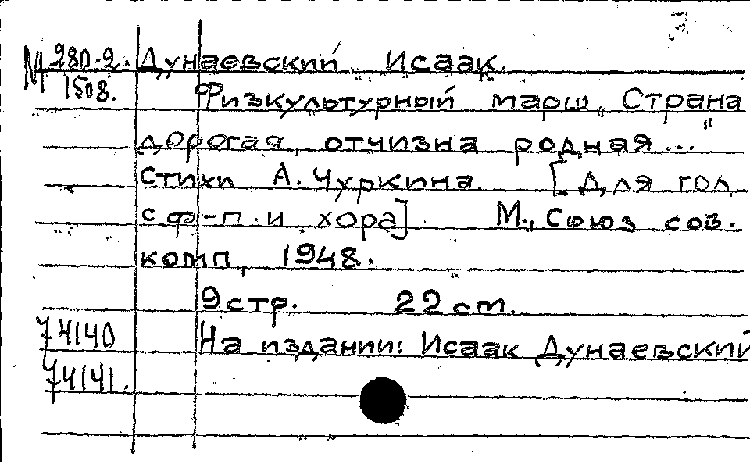 М 280-2. Дунаевский Исаак.
1508.
Физкультурный марш „Страна
дорогая, отчизна родная..."
Стихи А. Чуркина. [Для гол.
с ф-п. и хора]. М., Союз сов.
комп, 1948.
9 стр. 22 cm.
74140 На издании: Исаак Дунаевский
74141.